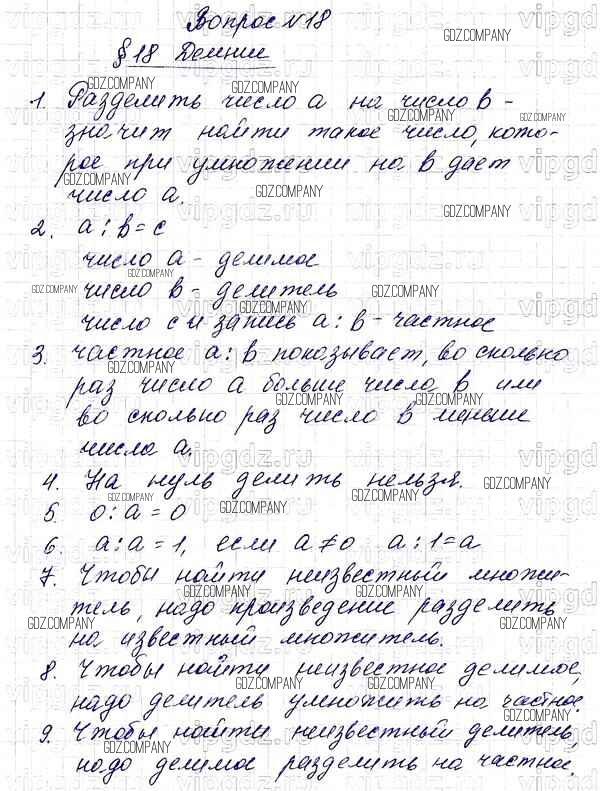 Вопрос №18
§18 Деление
1. Разделить число а на число в -
значит найти такое число, кото-
рое при умножении на в дает
число а.
2. а : в = с
число а - делимое
число в - делитель
число с и запись а : в - частное
3. частное а : в показывает, во сколько
раз число а больше числа в или
во сколько раз число в меньше
числа а.
4. На нуль делить нельзя.
5. 0 : а = 0
6. а : а = 1, если а ≠ 0 а : 1 = а
7. Чтобы найти неизвестный множи-
тель, надо произведение разделить
на известный множитель.
8. Чтобы найти неизвестное делимое,
надо делитель умножить на частное.
9. Чтобы найти неизвестный делитель,
надо делимое разделить на частное.
GDZ.COMPANY
vipgdz.ru